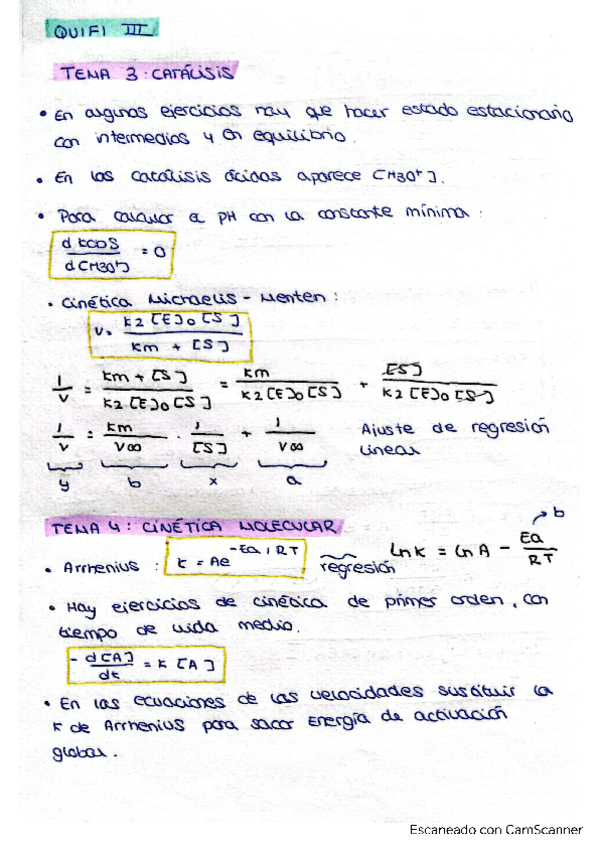 QUIFI III
TEMA 3: CATÁLISIS
• En algunos ejercicios hay que hacer estado estacionario
con intermedios y en equilibrio.
• En las catálisis ácidas aparece [H3O+].
• Para calcular el pH con la constante mínima:
d kcos / d[H3O+] = 0
• Cinética Michaelis-Menten:
v = k2[E]0[S] / km + [S]
1/v = km + [S] / k2[E]0[S] = km / k2[E]0[S] + [S] / k2[E]0[S]
1/v = km/v∞ · 1/[S] + 1/v∞ Ajuste de regresión
lineal
y b x a
TEMA 4: CINÉTICA MOLECULAR
• Arrhenius: k = Ae^-Ea/RT regresión ln k = ln A - Ea/RT → b
• Hay ejercicios de cinética de primer orden, con
tiempo de vida medio.
- d[A]/dt = k[A]
• En las ecuaciones de las velocidades sustituir la
k de Arrhenius para sacar Energía de activación
global.
Escaneado con CamScanner